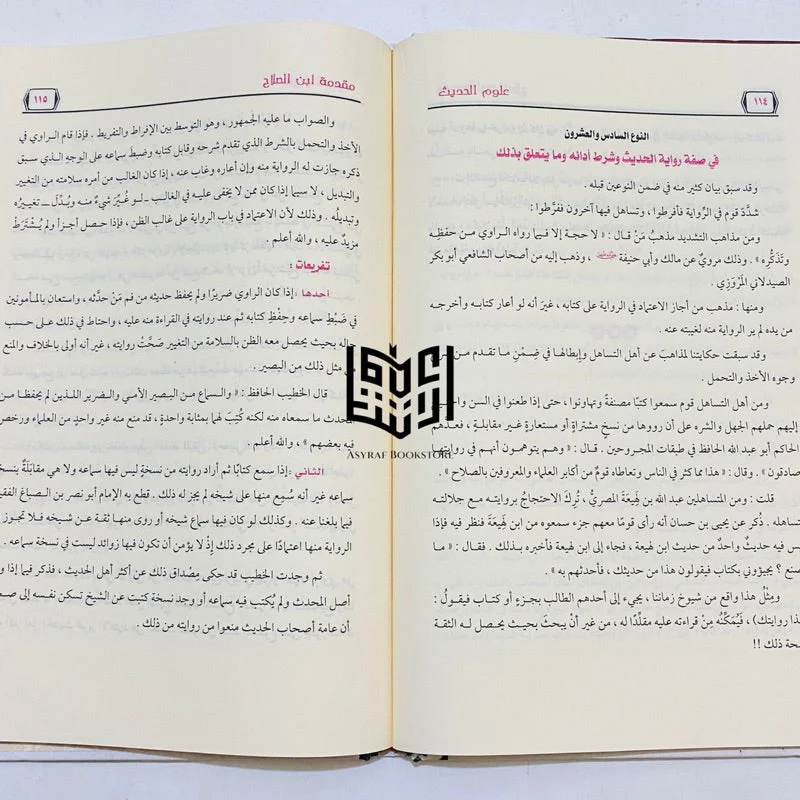 علوم الحديث
١١٤
النوع السادس والعشرون
في صفة رواية الحديث وشرط أدائه وما يتعلق بذلك
وقد سبق بيان كثير منه في ضمن النوعين قبله .
شدَّدَ قوم في الرِّواية فأفرطوا ، وتساهل فيها آخرون ففرَّطوا :
ومن مذاهب التشديد مذهبُ مَنْ قال : « لا حجة إلا فيما رواه الراوي من حفظِه
وتَذَكُّرِه » . وذلك مرويٌ عن مالك وأبي حنيفة ، وذهب إليه من أصحاب الشافعي أبو بكر
الصيدلاني المَرْوَزِي .
ومنها : مذهب من أجاز الاعتماد في الرواية على كتابه ، غيرَ أنه لو أعار كتابه وأخرجه
من يده لم ير الرواية منه لغيبته عنه .
وقد سبقت حكايتنا لمذاهبَ عن أهل التساهل وإبطالها في ضِمْنِ ما تقدم من شرح
وجوه الأخذ والتحمل .
ومن أهل التساهل قوم سمعوا كتبًا مصنفةً وتهاونوا ، حتى إذا طعنوا في السن واحتيج
إليهم حملهم الجهل والشره على أن رووها من نسخٍ مشتراةٍ أو مستعارةٍ غير مقابلةٍ ، فعدهم
الحاكم أبو عبد الله الحافظ في طبقات المجروحين . قال : « وهم يتوهمون أنهم في روايتها
صادقون » . وقال : « هذا مما كثر في الناس وتعاطاه قومٌ من أكابر العلماء والمعروفين بالصلاح » .
قلت : ومن المتساهلين عبد الله بن لَهِيعَةَ المصريُّ ، تُرِكَ الاحتجاجُ بروايته مع جلالته
لتساهله . ذُكر عن يحيى بن حسان أنه رأى قومًا معهم جزء سمعوه من ابن لَهِيعَةَ فنظر فيه فإذا
ليس فيه حديثٌ واحدٌ من حديث ابن لهيعة ، فجاء إلى ابن لهيعة فأخبره بذلك . فقال : « ما
أصنع ؟ يجيؤوني بكتاب فيقولون هذا من حديثك ، فأحدثهم به » .
ومِثْلُ هذا واقع من شيوخ زماننا ، يجيء إلى أحدهم الطالب بجزءٍ أو كتاب فيقول :
(هذا روايتك) ، فَيُمَكِّنُه مِنْ قراءته عليه مقلِّدًا له ، من غير أنْ يبحثَ بحيث يحصل له الثقة
بصحة ذلك !!
مقدمة ابن الصلاح
١١٥
والصواب ما عليه الجمهور ، وهو التوسط بين الإفراط والتفريط . فإذا قام الراوي في
الأخذ والتحمل بالشرط الذي تقدم شرحه وقابل كتابه وضبطَ سماعه على الوجهِ الذي سبق
ذكره جازت له الرواية منه وإن أعاره وغاب عنه ، إذا كان الغالب من أمره سلامته من التغيير
والتبديل ، لا سيما إذا كان ممن لا يخفى عليه في الغالب - لو غُيِّرَ شيءٌ منه وبُدِّلَ - تغييرُه
وتبديلُه . وذلك لأن الاعتماد في باب الرواية على غالب الظن ، فإذا حصل أجزأ ولم يُشْتَرَطْ
مزيدٌ عليه ، والله أعلم .
تفريعات :
أحدها : إذا كان الراوي ضريرًا ولم يحفظ حديثه من فم مَنْ حدَّثه ، واستعان بالمأمونين
في ضَبْطِ سماعه وحِفْظِ كتابه ثم عند روايته في القراءة منه عليه ، واحتاط في ذلك على حسب
حاله بحيث يحصل معه الظن بالسلامة من التغيير صَحَّتْ روايته ، غير أنه أولى بالخلاف والمنع
من مثل ذلك من البصير .
قال الخطيب الحافظ : « والسماع من البصير الأمي والضرير اللذين لم يحفظا من
المحدث ما سمعاه منه لكنه كُتِبَ لهما بمثابة واحدةٍ ، قد منع منه غير واحدٍ من العلماء ورخص
فيه بعضهم » ، والله أعلم .
الثاني : إذا سمع كتابًا ثم أراد روايته من نسخةٍ ليس فيها سماعه ولا هي مقابَلَةٌ بنسخة
سماعه غير أنه سُمِع منها على شيخه لم يجز له ذلك . قطع به الإمام أبو نصر بن الصباغ الفقيه
فيما بلغنا عنه . وكذلك لو كان فيها سماع شيخه أو روى منها ثقةٌ عن شيخه فلا تجوز له
الرواية منها اعتمادًا على مجرد ذلك إذْ لا يؤمن أن تكون فيها زوائد ليست في نسخة سماعه .
ثم وجدت الخطيب قد حكى مِصْداق ذلك عن أكثر أهل الحديث ، فذكر فيما إذا
أصل المحدث ولم يُكتب فيه سماعه أو وجد نسخة كتبت عن الشيخ تسكن نفسه إلى صحتها
أن عامة أصحاب الحديث منعوا من روايته من ذلك .
ASYRAF BOOKSTORE